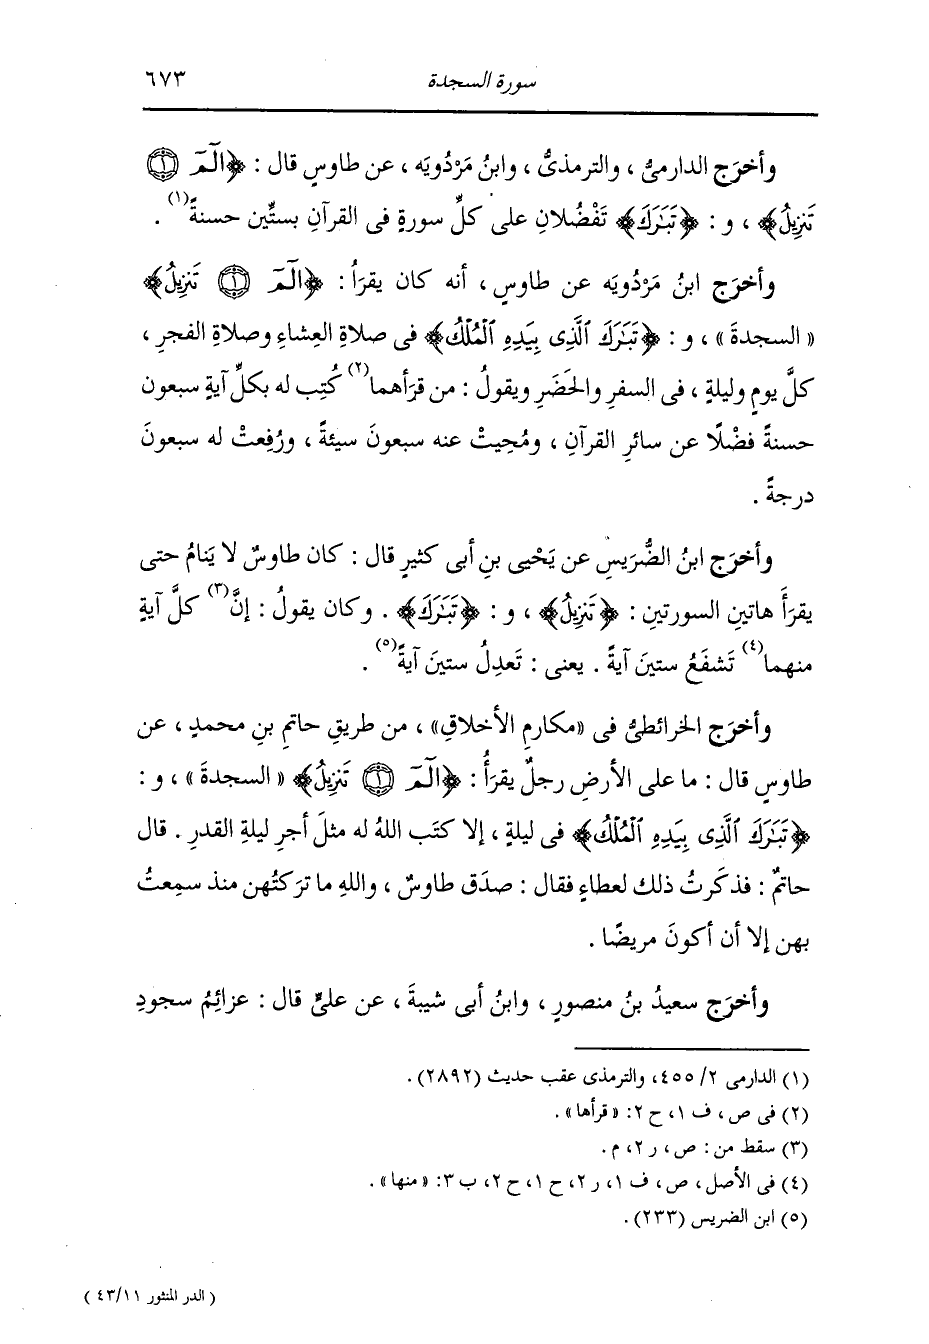 سورة السجدة ٦٧٣
وأخرَج الدارمىُّ ، والترمذىُّ ، وابنُ مَرْدُويَه ، عن طاوسٍ قال : ﴿الٓمٓ ۝١
تَنزِيلُ﴾ ، و : ﴿تَبَٰرَكَ﴾ تَفْضُلانِ على كلِّ سورةٍ فى القرآنِ بستِّين حسنةً(١) .
وأخرَج ابنُ مَرْدُويَه عن طاوسٍ ، أنه كان يقرَأُ : ﴿الٓمٓ ۝١ تَنزِيلُ﴾
«السجدةَ» ، و : ﴿تَبَٰرَكَ ٱلَّذِى بِيَدِهِ ٱلْمُلْكُ﴾ فى صلاةِ العِشاءِ وصلاةِ الفجرِ ،
كلَّ يومٍ وليلةٍ ، فى السفرِ والحَضَرِ ويقولُ : من قرَأهما(٢) كُتِب له بكلِّ آيةٍ سبعون
حسنةً فضْلًا عن سائرِ القرآنِ ، ومُحِيتْ عنه سبعونَ سيئةً ، ورُفِعتْ له سبعونَ
درجةً .
وأخرَج ابنُ الضُّرَيسِ عن يَحْيى بنِ أبى كثيرٍ قال : كان طاوسٌ لا يَنامُ حتى
يقرَأَ هاتينِ السورتينِ : ﴿تَنزِيلُ﴾ ، و : ﴿تَبَٰرَكَ﴾ . وكان يقولُ : إنَّ(٣) كلَّ آيةٍ
منهما(٤) تَشفَعُ ستينَ آيةً . يعنى : تَعدِلُ ستينَ آيةً(٥) .
وأخرَج الخرائطىُّ فى «مكارمِ الأخلاقِ» ، من طريقِ حاتمِ بنِ محمدٍ ، عن
طاوسٍ قال : ما على الأرضِ رجلٌ يقرَأُ : ﴿الٓمٓ ۝١ تَنزِيلُ﴾ «السجدةَ» ، و :
﴿تَبَٰرَكَ ٱلَّذِى بِيَدِهِ ٱلْمُلْكُ﴾ فى ليلةٍ ، إلا كتَب اللهُ له مثلَ أجرِ ليلةِ القدرِ . قال
حاتمٌ : فذكَرتُ ذلك لعطاءٍ فقال : صدَق طاوسٌ ، واللهِ ما ترَكتُهن منذ سمِعتُ
بهن إلا أن أكونَ مريضًا .
وأخرَج سعيدُ بنُ منصورٍ ، وابنُ أبى شيبةَ ، عن علىٍّ قال : عزائِمُ سجودِ
(١) الدارمى ٢/ ٤٥٥، والترمذى عقب حديث (٢٨٩٢).
(٢) فى ص، ف ١، ح ٢: «قرأها».
(٣) سقط من: ص، ر ٢، م.
(٤) فى الأصل، ص، ف ١، ر ٢، ح ١، ح ٢، ب ٣: «منها».
(٥) ابن الضريس (٢٣٣).
( الدر المنثور ٤٣/١١ )